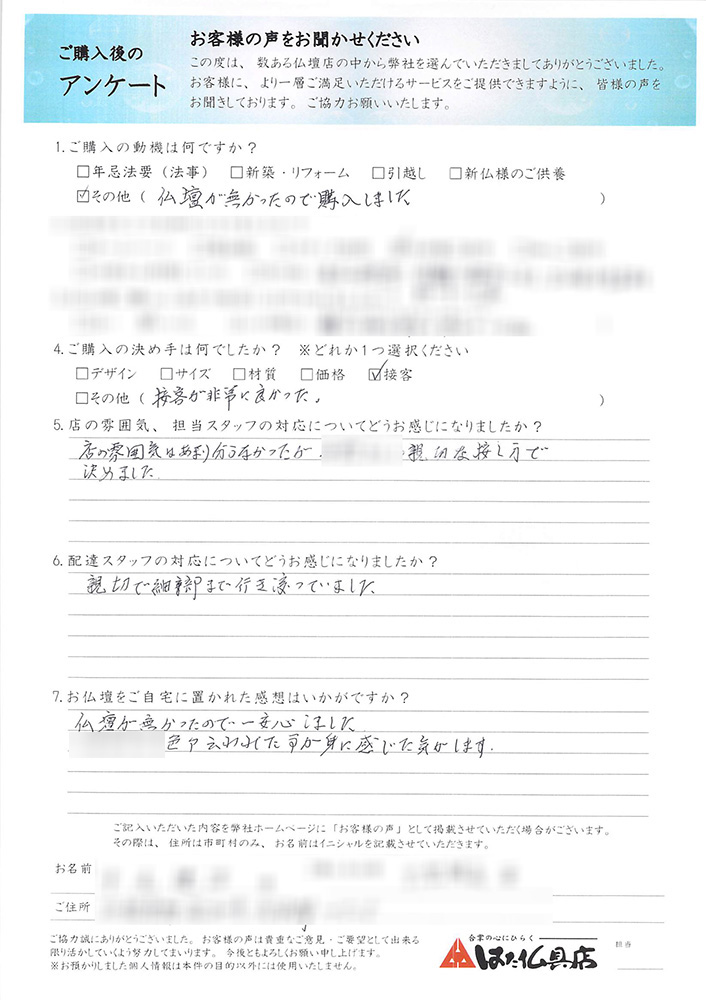 ご購入後の
アンケート
お客様の声をお聞かせください
この度は、数ある仏壇店の中から弊社を選んでいただきましてありがとうございました。
お客様に、より一層ご満足いただけるサービスをご提供できますように、皆様の声を
お聞きしております。ご協力お願いいたします。
1.ご購入の動機は何ですか？
□年忌法要（法事） □新築・リフォーム □引越し □新仏様のご供養
☑その他（ 仏壇が無かったので購入しました ）
4.ご購入の決め手は何でしたか？ ※どれか1つ選択ください
□デザイン □サイズ □材質 □価格 ☑接客
□その他（ 接客が非常に良かった。 ）
5.店の雰囲気、担当スタッフの対応についてどうお感じになりましたか？
店の雰囲気はあまり分らなかったが、 親切な接し方で
決めました
6.配達スタッフの対応についてどうお感じになりましたか？
親切で細部まで行き渡っていました
7.お仏壇をご自宅に置かれた感想はいかがですか？
仏壇が無かったので一安心しました
色々云われた事が身に感じた気がします.
ご記入いただいた内容を弊社ホームページに「お客様の声」として掲載させていただく場合がございます。
その際は、住所は市町村のみ、お名前はイニシャルを記載させていただきます。
お名前
ご住所
ご協力誠にありがとうございました。お客様の声は貴重なご意見・ご要望として出来る
限り活かしていくよう努力してまいります。今後ともよろしくお願い申し上げます。
※お預かりしました個人情報は本件の目的以外には使用いたしません。
合掌の心にひらく
はた仏具店
担当